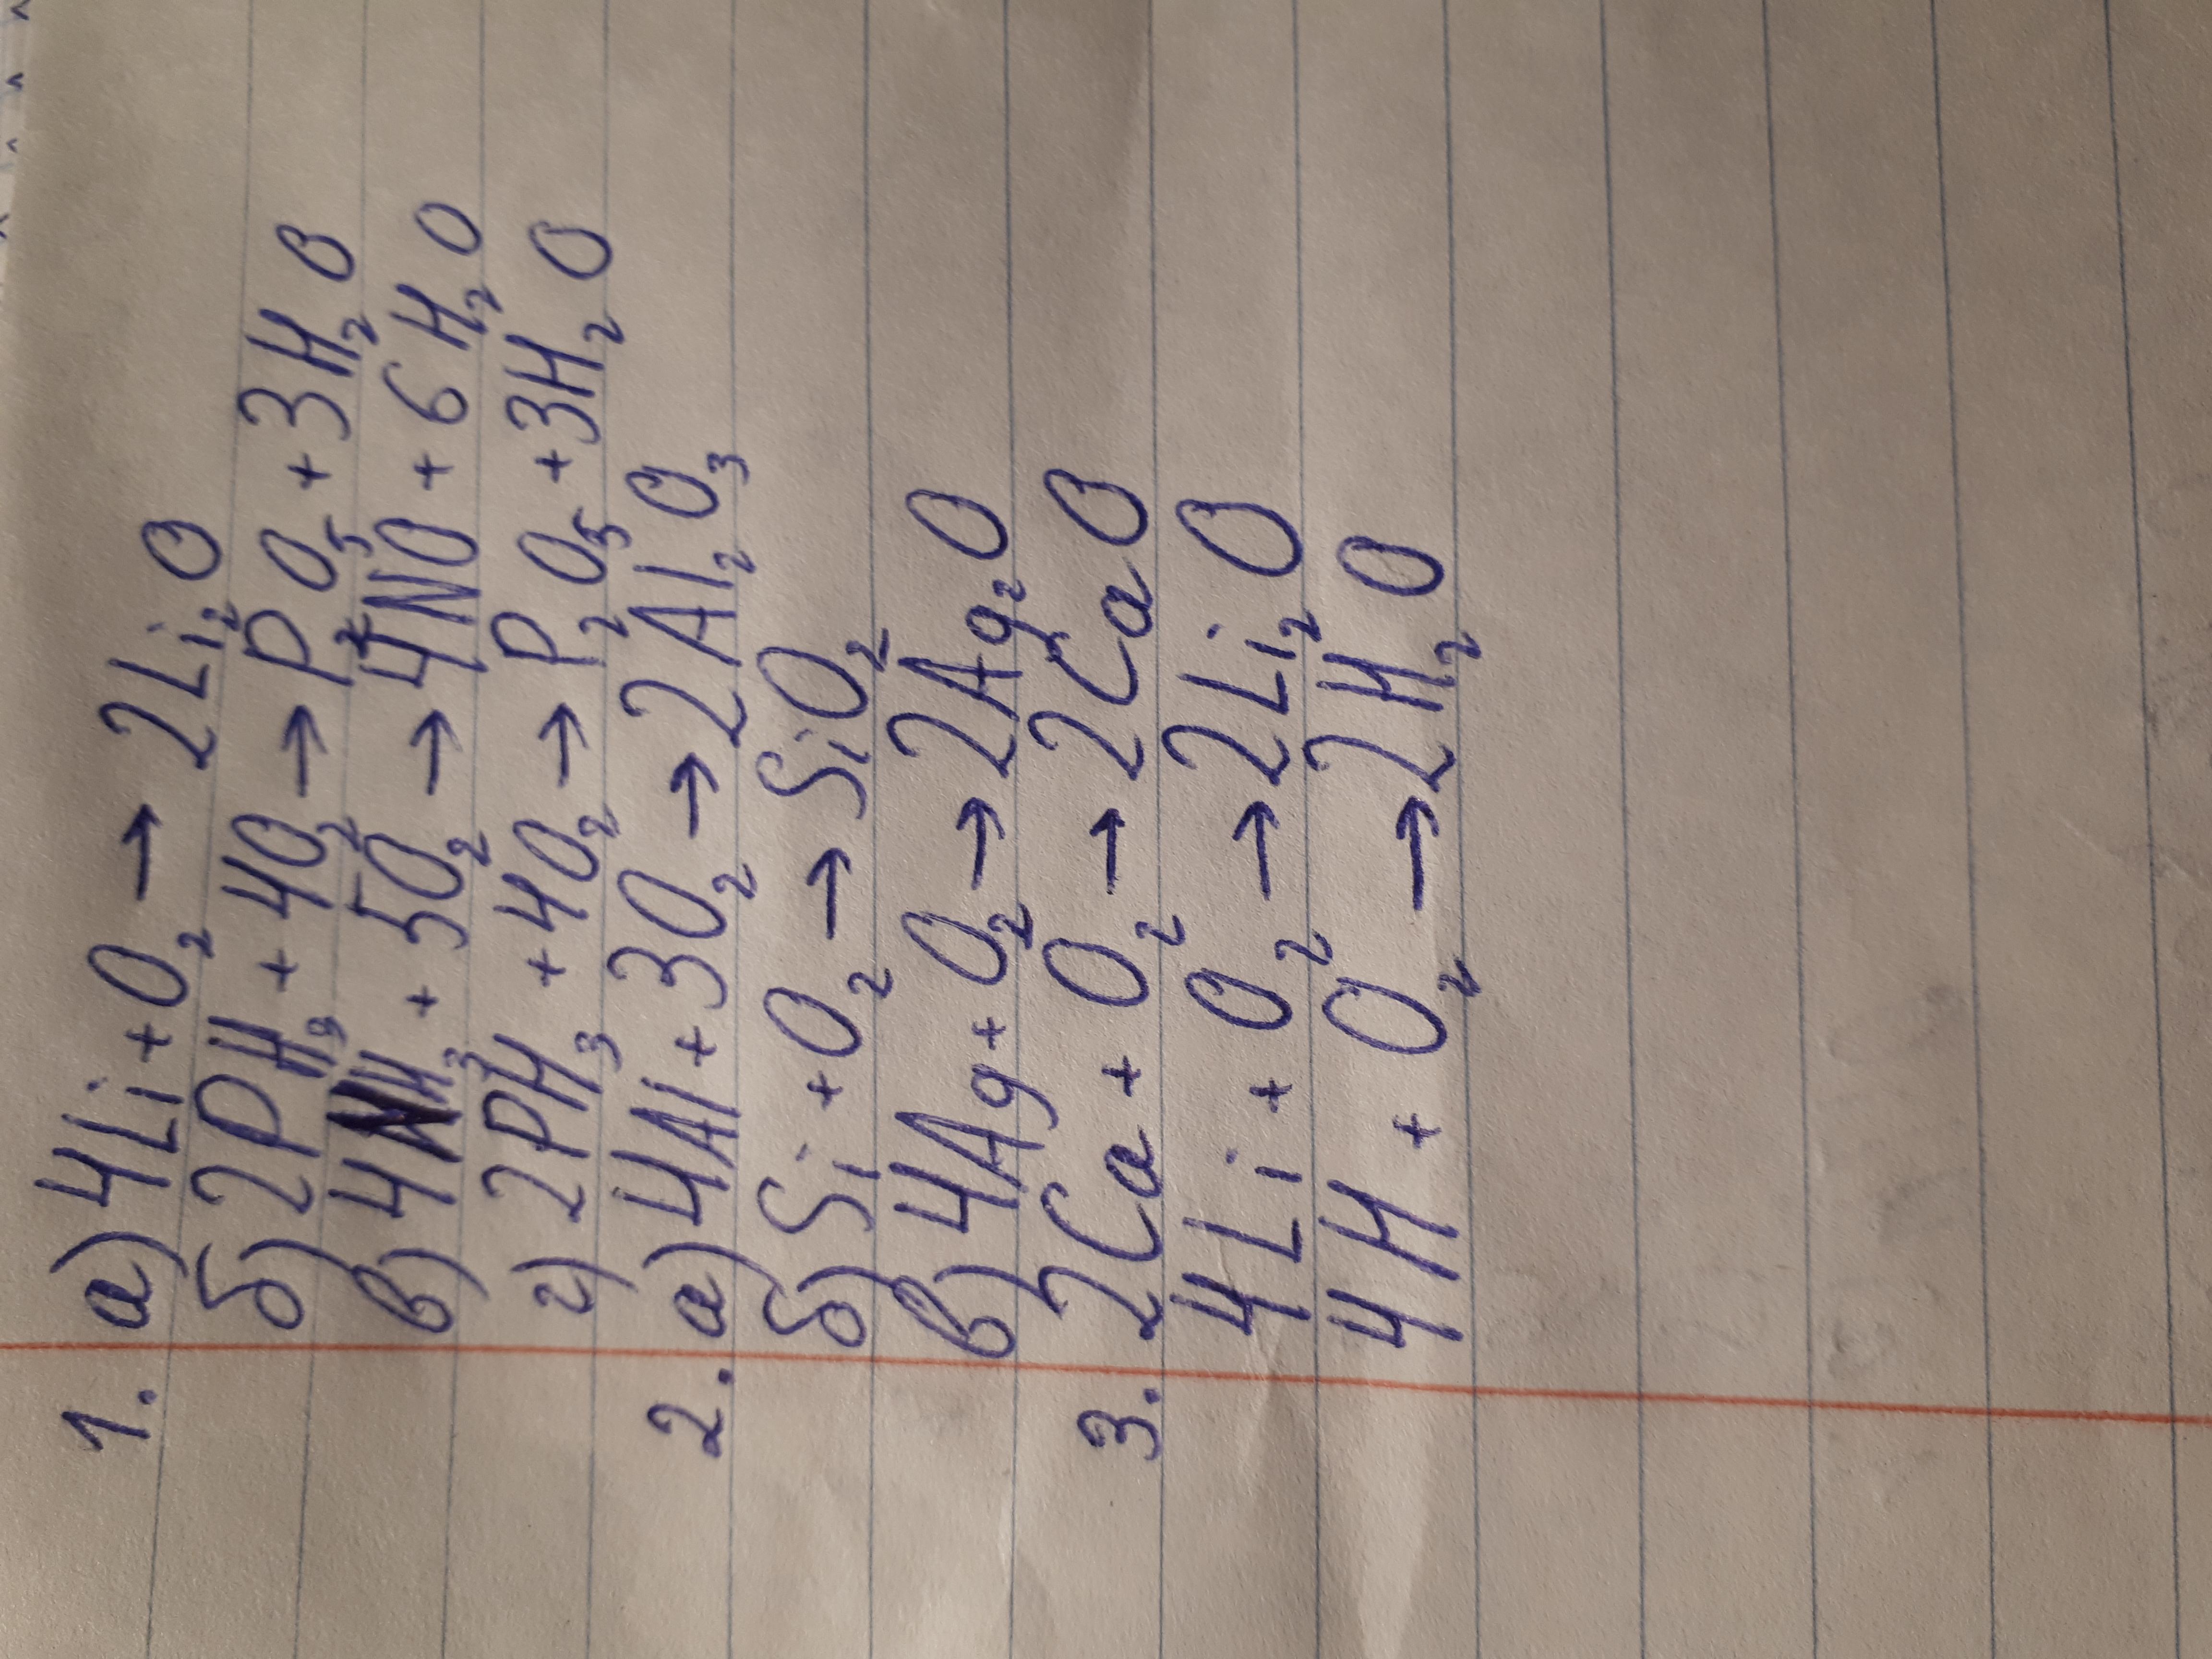 1. а) 4Li + O₂ → 2Li₂O
б) 2PH₃ + 4O₂ → P₂O₅ + 3H₂O
в) 4NH₃ + 5O₂ → 4NO + 6H₂O
г) 2PH₃ + 4O₂ → P₂O₅ + 3H₂O
2. а) 4Al + 3O₂ → 2Al₂O₃
б) Si + O₂ → SiO₂
в) 4Ag + O₂ → 2Ag₂O
3. 2Ca + O₂ → 2CaO
4Li + O₂ → 2Li₂O
4H + O₂ → 2H₂O